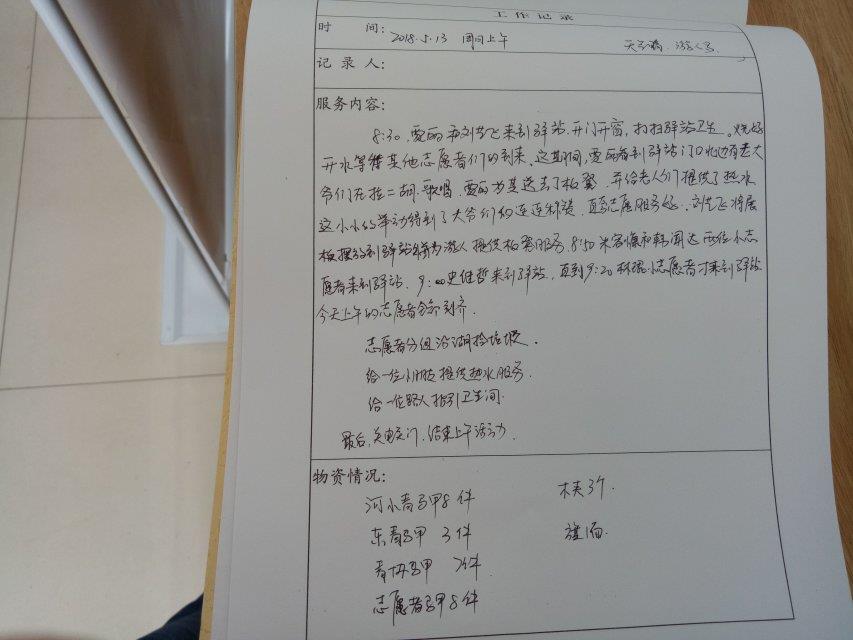 工作记录
时 间: 2018.5.13 周日上午 天气晴.游人多.
记录人:
服务内容:
8:30.爱丽和刘芳飞来到驿站.开门开窗,打扫驿站卫生。烧好
开水等待其他志愿者们的到来.这期间,爱丽看到驿站门口北边有老大
爷们在拉二胡.歌唱.爱丽为其送去了板凳.并给老人们提供了热水
这小小的举动得到了大爷们的连连称赞.直写志愿服务好.刘芳飞将展
板摆放到驿站前为游人提供板凳服务.8:50 和韩周达两位小志
愿者来到驿站.9:00史继哲来到驿站.直到9:20 小志愿者才来到驿站
今天上午的志愿者全部到齐.
志愿者分组沿湖捡垃圾.
给一位小朋友提供热水服务.
给一位路人指引卫生间.
最后,关电关门.结束上午活动.
物资情况:
河小青马甲8件 木夹3个.
东青马甲 3件 旗1面.
青协马甲 2件.
志愿者马甲8件